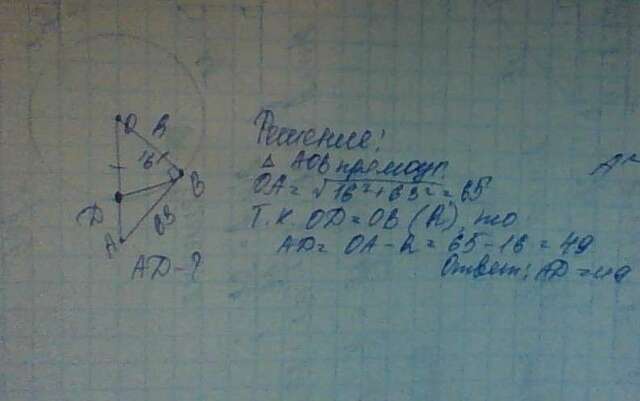 O R
16
B
D
63
A
AD-?
Решение:
△ AOB прямоуг.
OA = √16²+63² = 65
Т.к. OD=OB (R), то
AD = OA - R = 65-16 = 49
Ответ: AD = 49